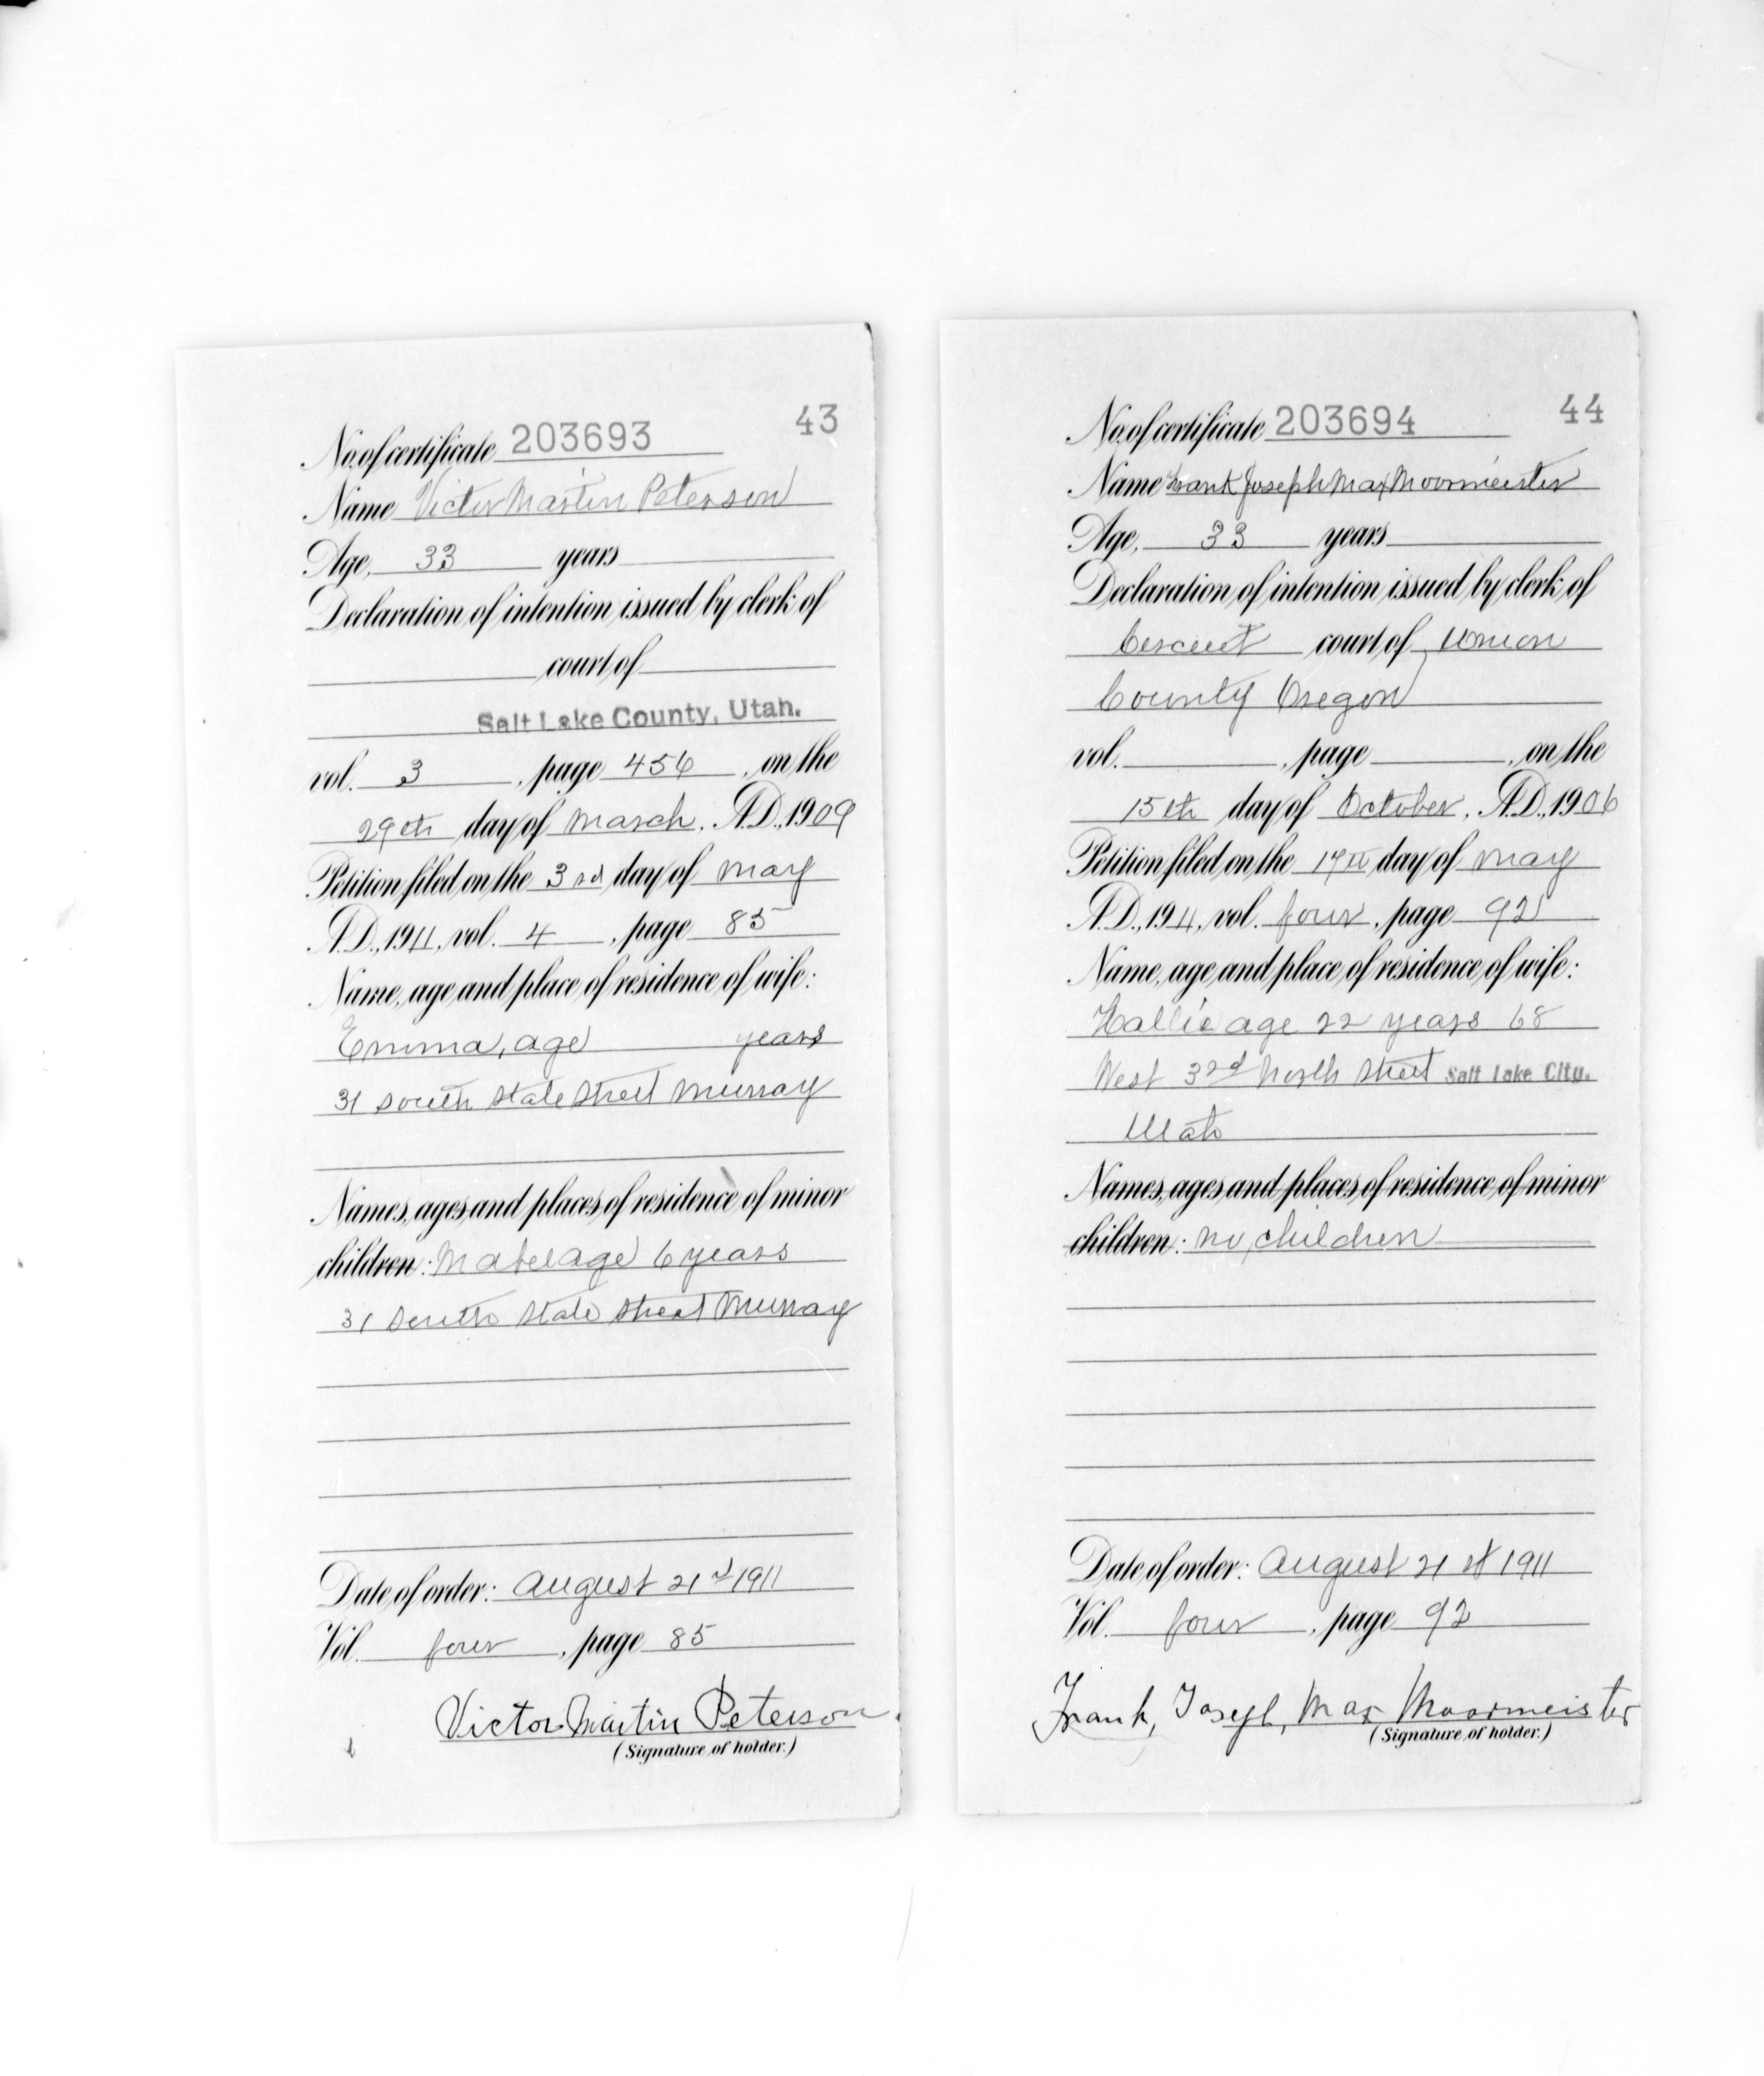 43
No. of certificate 203693
Name Victor Martin Peterson
Age, 33 years
Declaration of intention issued by clerk of
court of
Salt Lake County, Utah.
vol. 3, page 456, on the
29th day of March, A.D., 1909
Petition filed on the 3rd day of May
A.D., 1911, vol. 4, page 85
Name, age and place of residence of wife:
Emma, age years
31 South State Street Murray
Names, ages and places of residence of minor
children: Mabel age 6 years
31 South State Street Murray
Date of order: August 21st 1911
Vol. four, page 85
Victor Martin Peterson.
(Signature of holder.)
44
No. of certificate 203694
Name Frank Joseph Max Moormeister
Age, 33 years
Declaration of intention issued by clerk of
Circuit court of Union
County Oregon
vol. , page , on the
15th day of October, A.D., 1906
Petition filed on the 17th day of May
A.D., 1911, vol. four, page 92
Name, age and place of residence of wife:
Hallie age 22 years 68
West 3rd North Street Salt Lake City.
Utah
Names, ages and places of residence of minor
children: no children
Date of order: August 21st 1911
Vol. four, page 92
Frank, Joseph, Max Moormeister
(Signature of holder.)